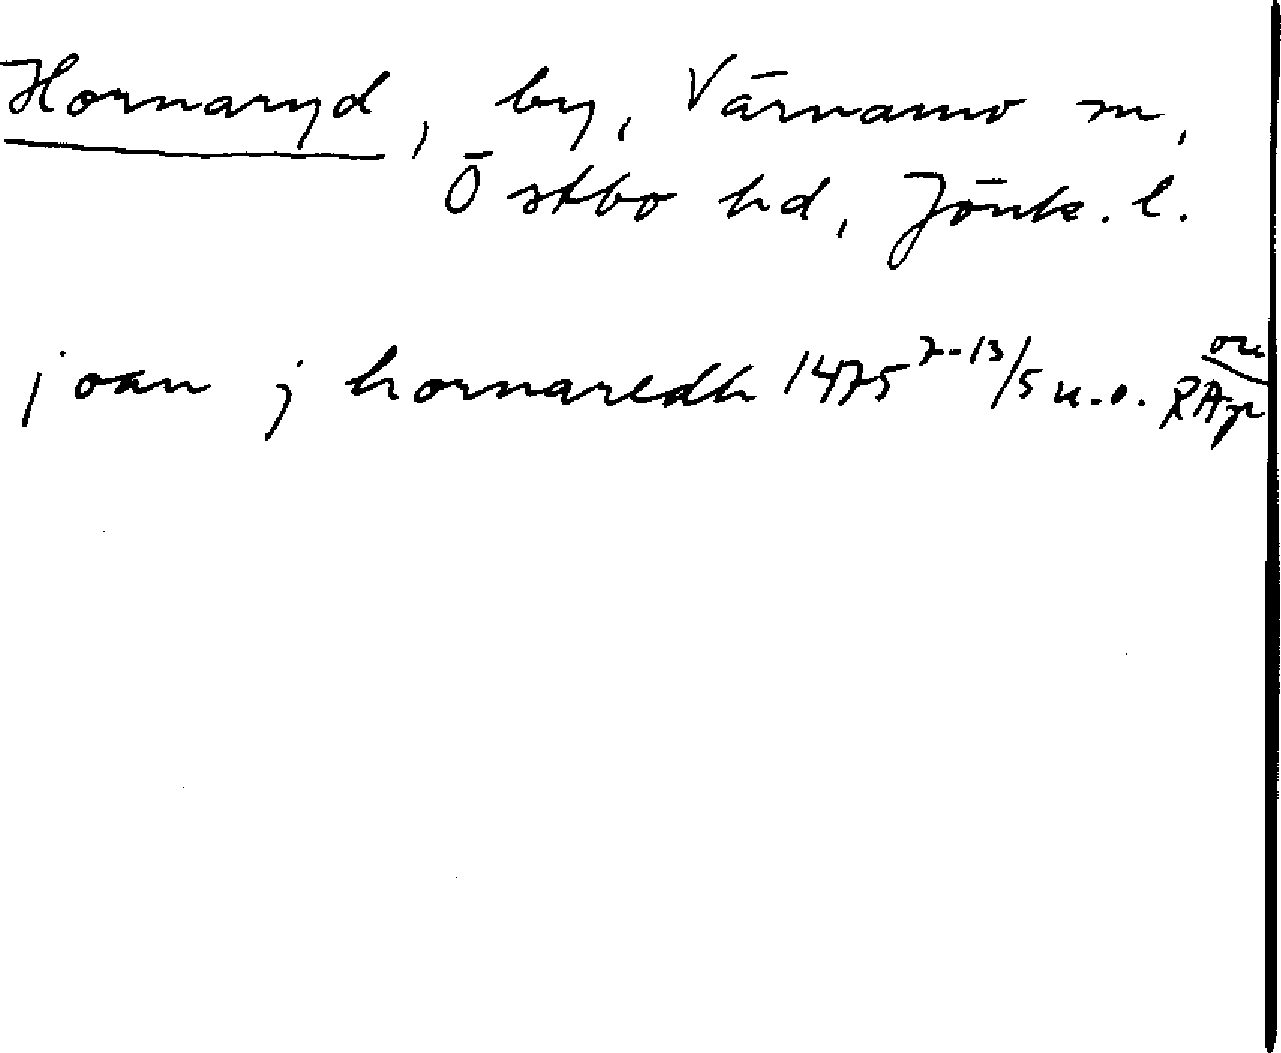 Hornaryd, by, Värnamo sn,
Östbo hd, Jönk. l.
joan j hornaredh 1475 7-13/5 u.o. or RAp